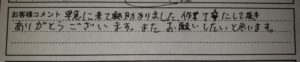 お客様コメント 早急に来て頂き助かりました、作業丁寧にして頂き
ありがとうございます。また、お願いしたいと思います。